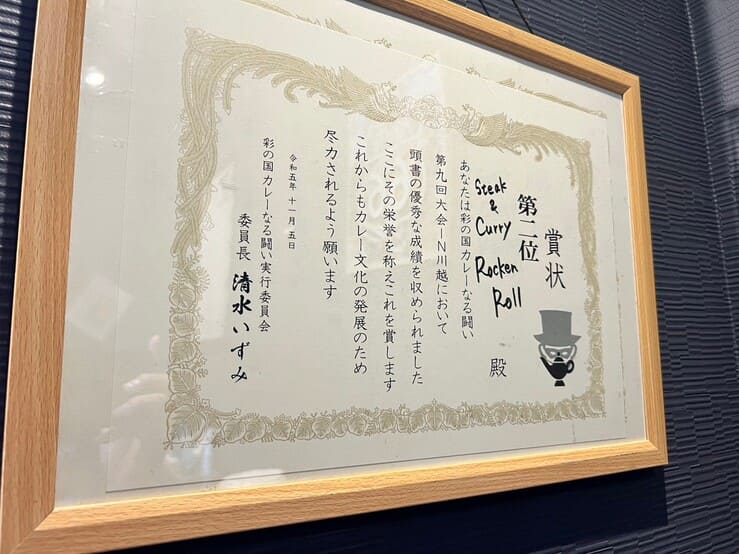 賞状
第二位
Steak
&
Curry
Rocken
Roll
殿
あなたは彩の国カレーなる闘い
第九回大会IN川越において
頭書の優秀な成績を収められました
ここにその栄誉を称えこれを賞します
これからもカレー文化の発展のため
尽力されるよう願います
令和五年十一月五日
彩の国カレーなる闘い実行委員会
委員長 清水いずみ